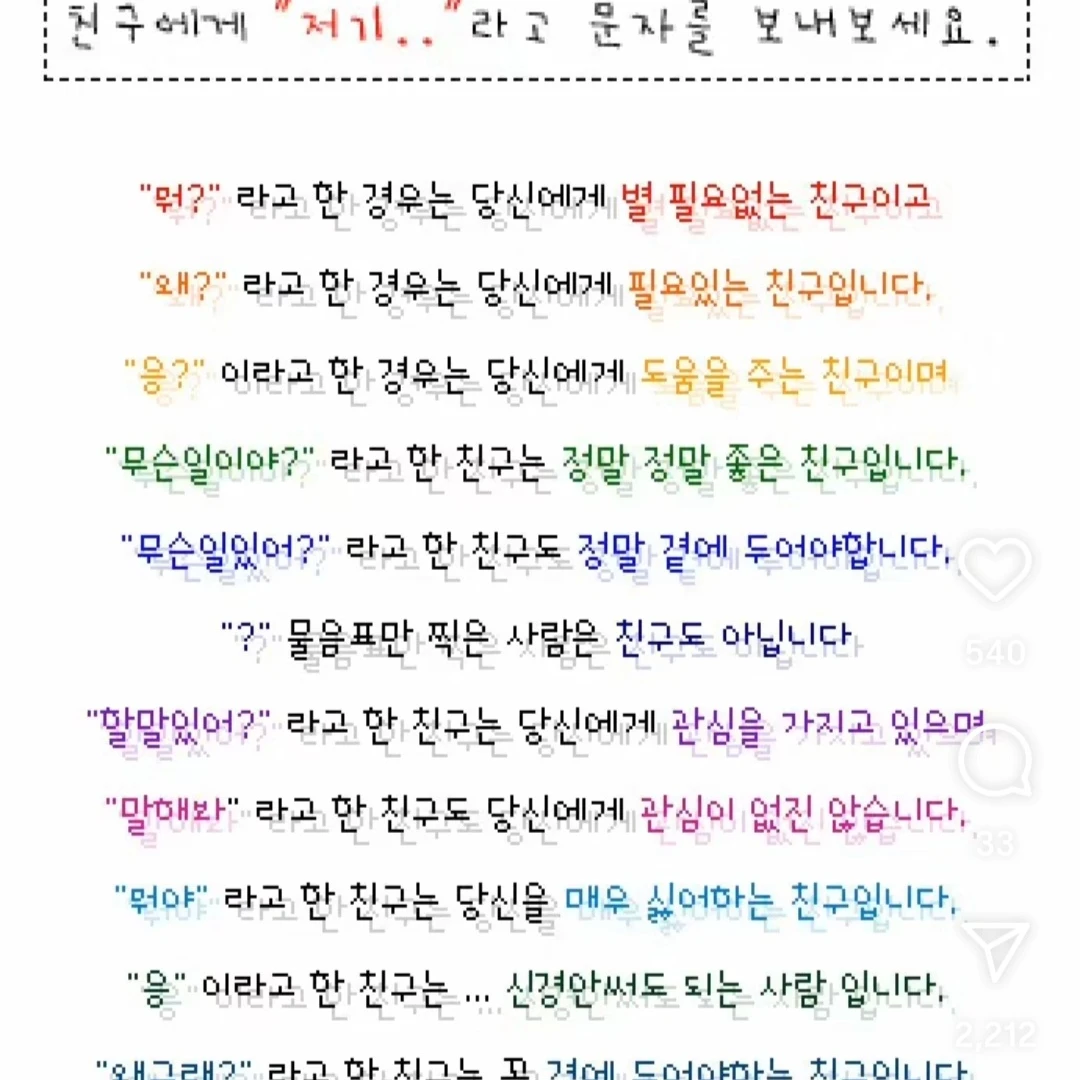 친구에게 "저기.."라고 문자를 보내보세요.
"뭐?" 라고 한 경우는 당신에게 별 필요없는 친구이고
"왜?" 라고 한 경우는 당신에게 필요있는 친구입니다.
"응?" 이라고 한 경우는 당신에게 도움을 주는 친구이며
"무슨일이야?" 라고 한 친구는 정말 정말 좋은 친구입니다.
"무슨일있어?" 라고 한 친구도 정말 곁에 두어야합니다.
"?" 물음표만 찍은 사람은 친구도 아닙니다
"할말있어?" 라고 한 친구는 당신에게 관심을 가지고 있으며
"말해봐" 라고 한 친구도 당신에게 관심이 없진 않습니다.
"뭐야" 라고 한 친구는 당신을 매우 싫어하는 친구입니다.
"응" 이라고 한 친구는 ... 신경안써도 되는 사람 입니다.
"왜그래?" 라고 한 친구는 꼭 곁에 두어야하는 친구입니다
540
33
2,212